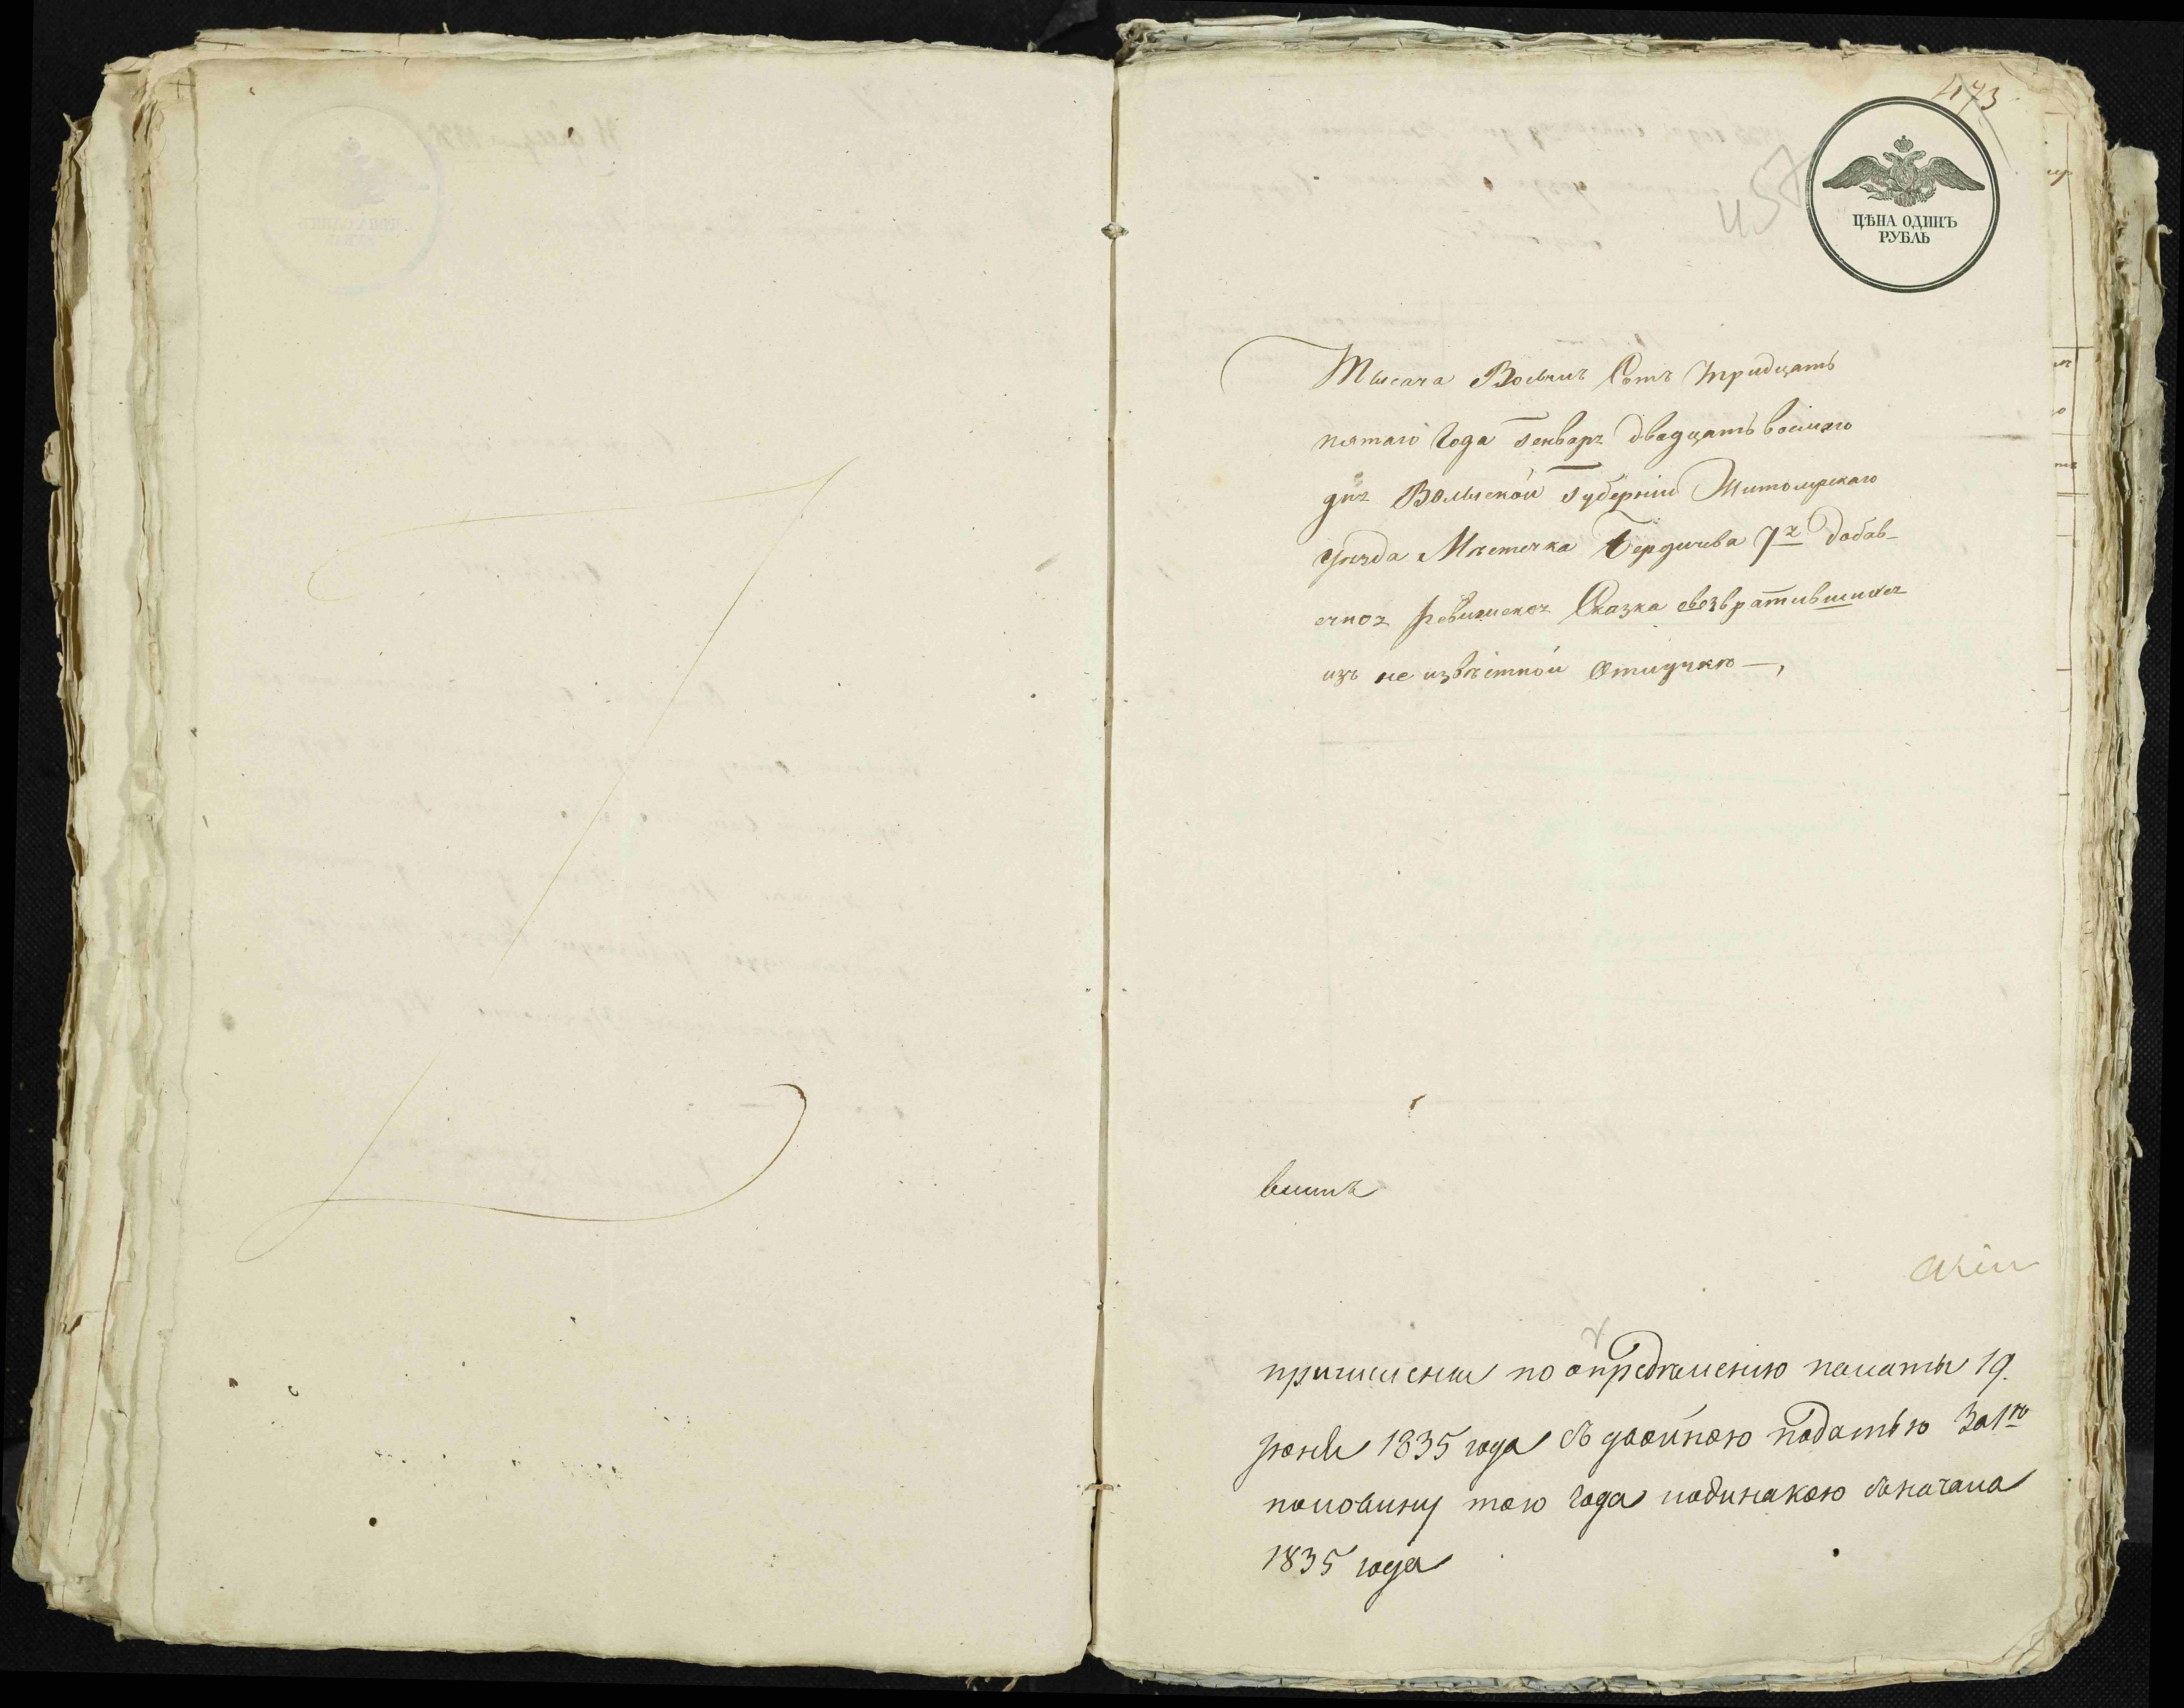 473
457
ЦѢНА ОДИНЪ
РУБЛЬ
Тысяча Восѣмъ Сотъ тридцать
пятаго Года Генваря двадцать восмаго
дня Волынской Губерніи Житомирскаго
уѣзда Мѣстечка Бердичева 7я добав-
очная Ревижская Сказка овозвратившихся
изъ не извѣстной Отлучки —,
причислены по опредѣленію палаты 19.
Іюня 1835 года съ двойною податью за 1ю
половину того года иодинакою сначала
1835 года